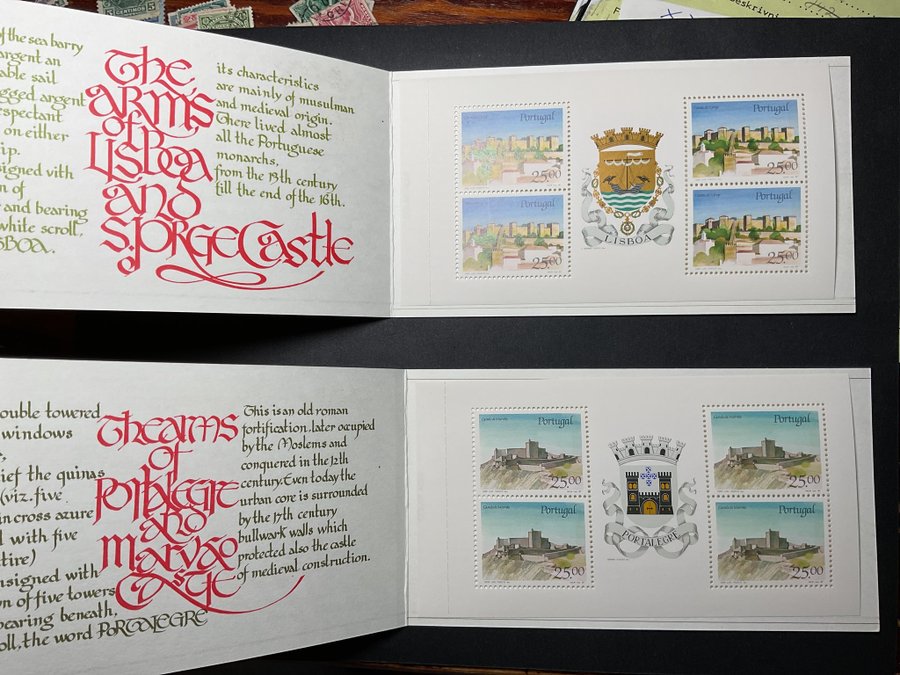 of the sea barry
argent an
able sail
gged argent
rspectant
on either
ip.
signed vith
n of
and bearing
white scroll,
SBOA.
The
arms
of
Lisboa
and
S. Jorge Castle
its characteristics
are mainly of musulman
and medieval origin.
There lived almost
all the Portuguese
monarchs,
from the 13th century
till the end of the 16th.
Portugal
25.00
Portugal
25.00
LISBOA
Portugal
25.00
Portugal
25.00
ouble towered
windows
ief the quinas
(viz. five
in cross azure
d with five
tire)
nsigned with
on of five towers
pearing beneath,
oll, the word PORTALEGRE
The arms
of
Portalegre
and
Marvao
Castle
This is an old roman
fortification, later occupied
by the Moslems and
conquered in the 12th
century. Even today the
urban core is surrounded
by the 17th century
bullwark walls which
protected also the castle
of medieval construction.
Castelo de Marvão
Portugal
25.00
Castelo de Marvão
Portugal
25.00
PORTALEGRE
Castelo de Marvão
Portugal
25.00
Castelo de Marvão
Portugal
25.00
CENTIMOS